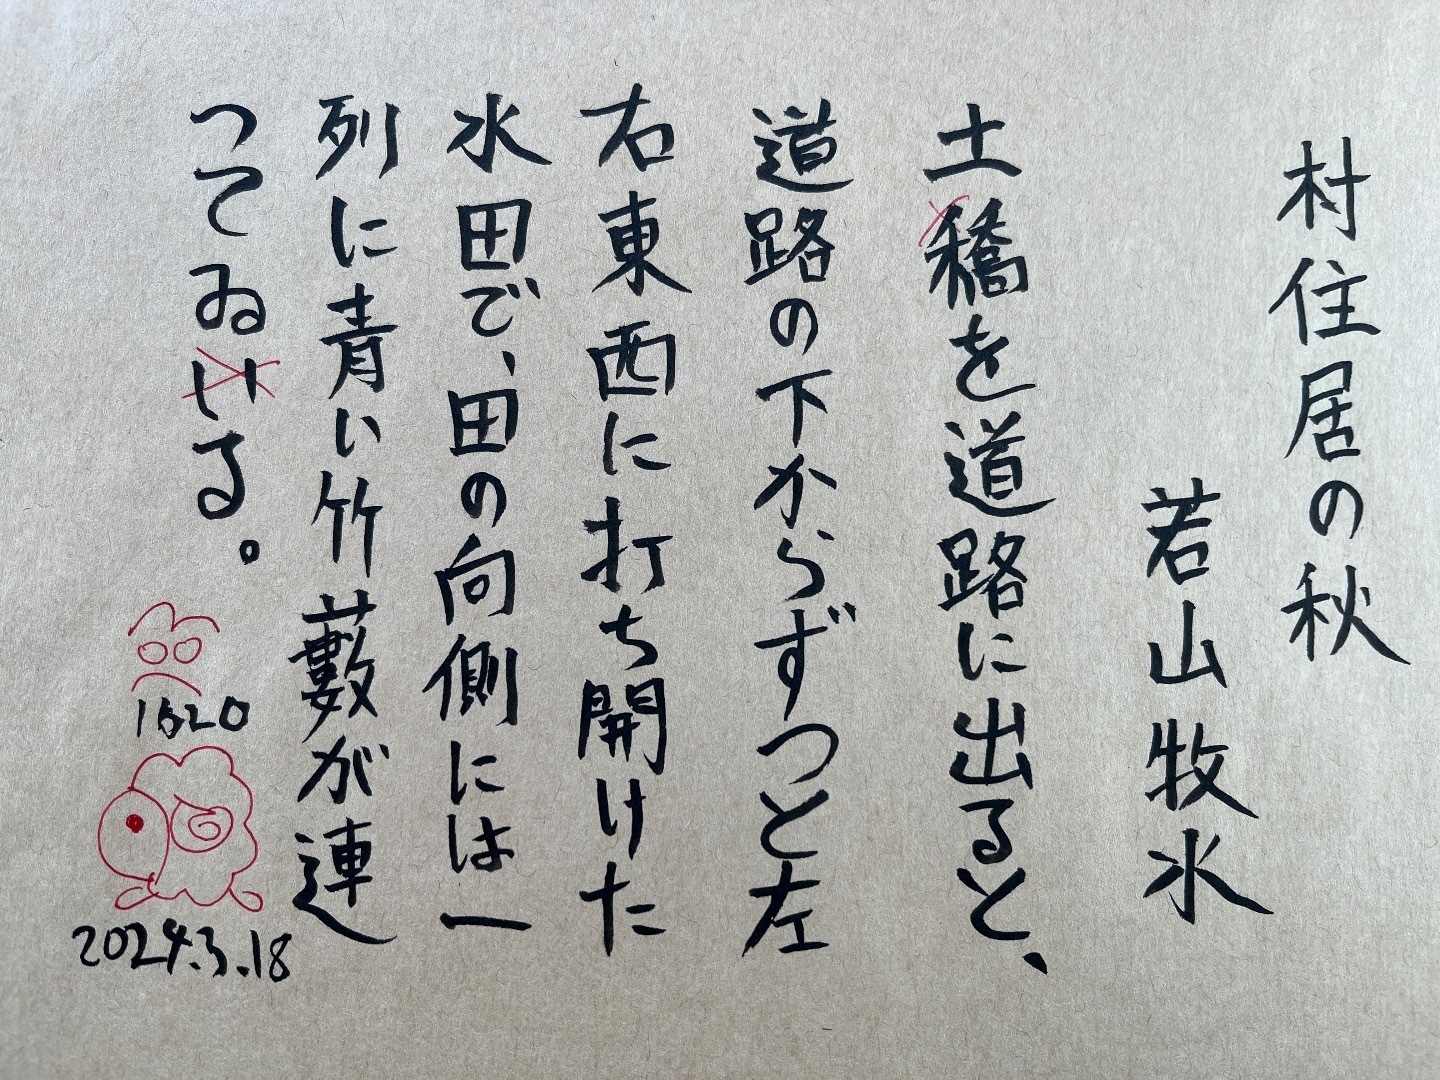 村住居の秋
若山牧水
土穚を道路に出ると、
道路の下からずつと左
右東西に打ち開けた
水田で、田の向側には一
列に青い竹藪が連
つてゐいる。
1620
2024.3.18